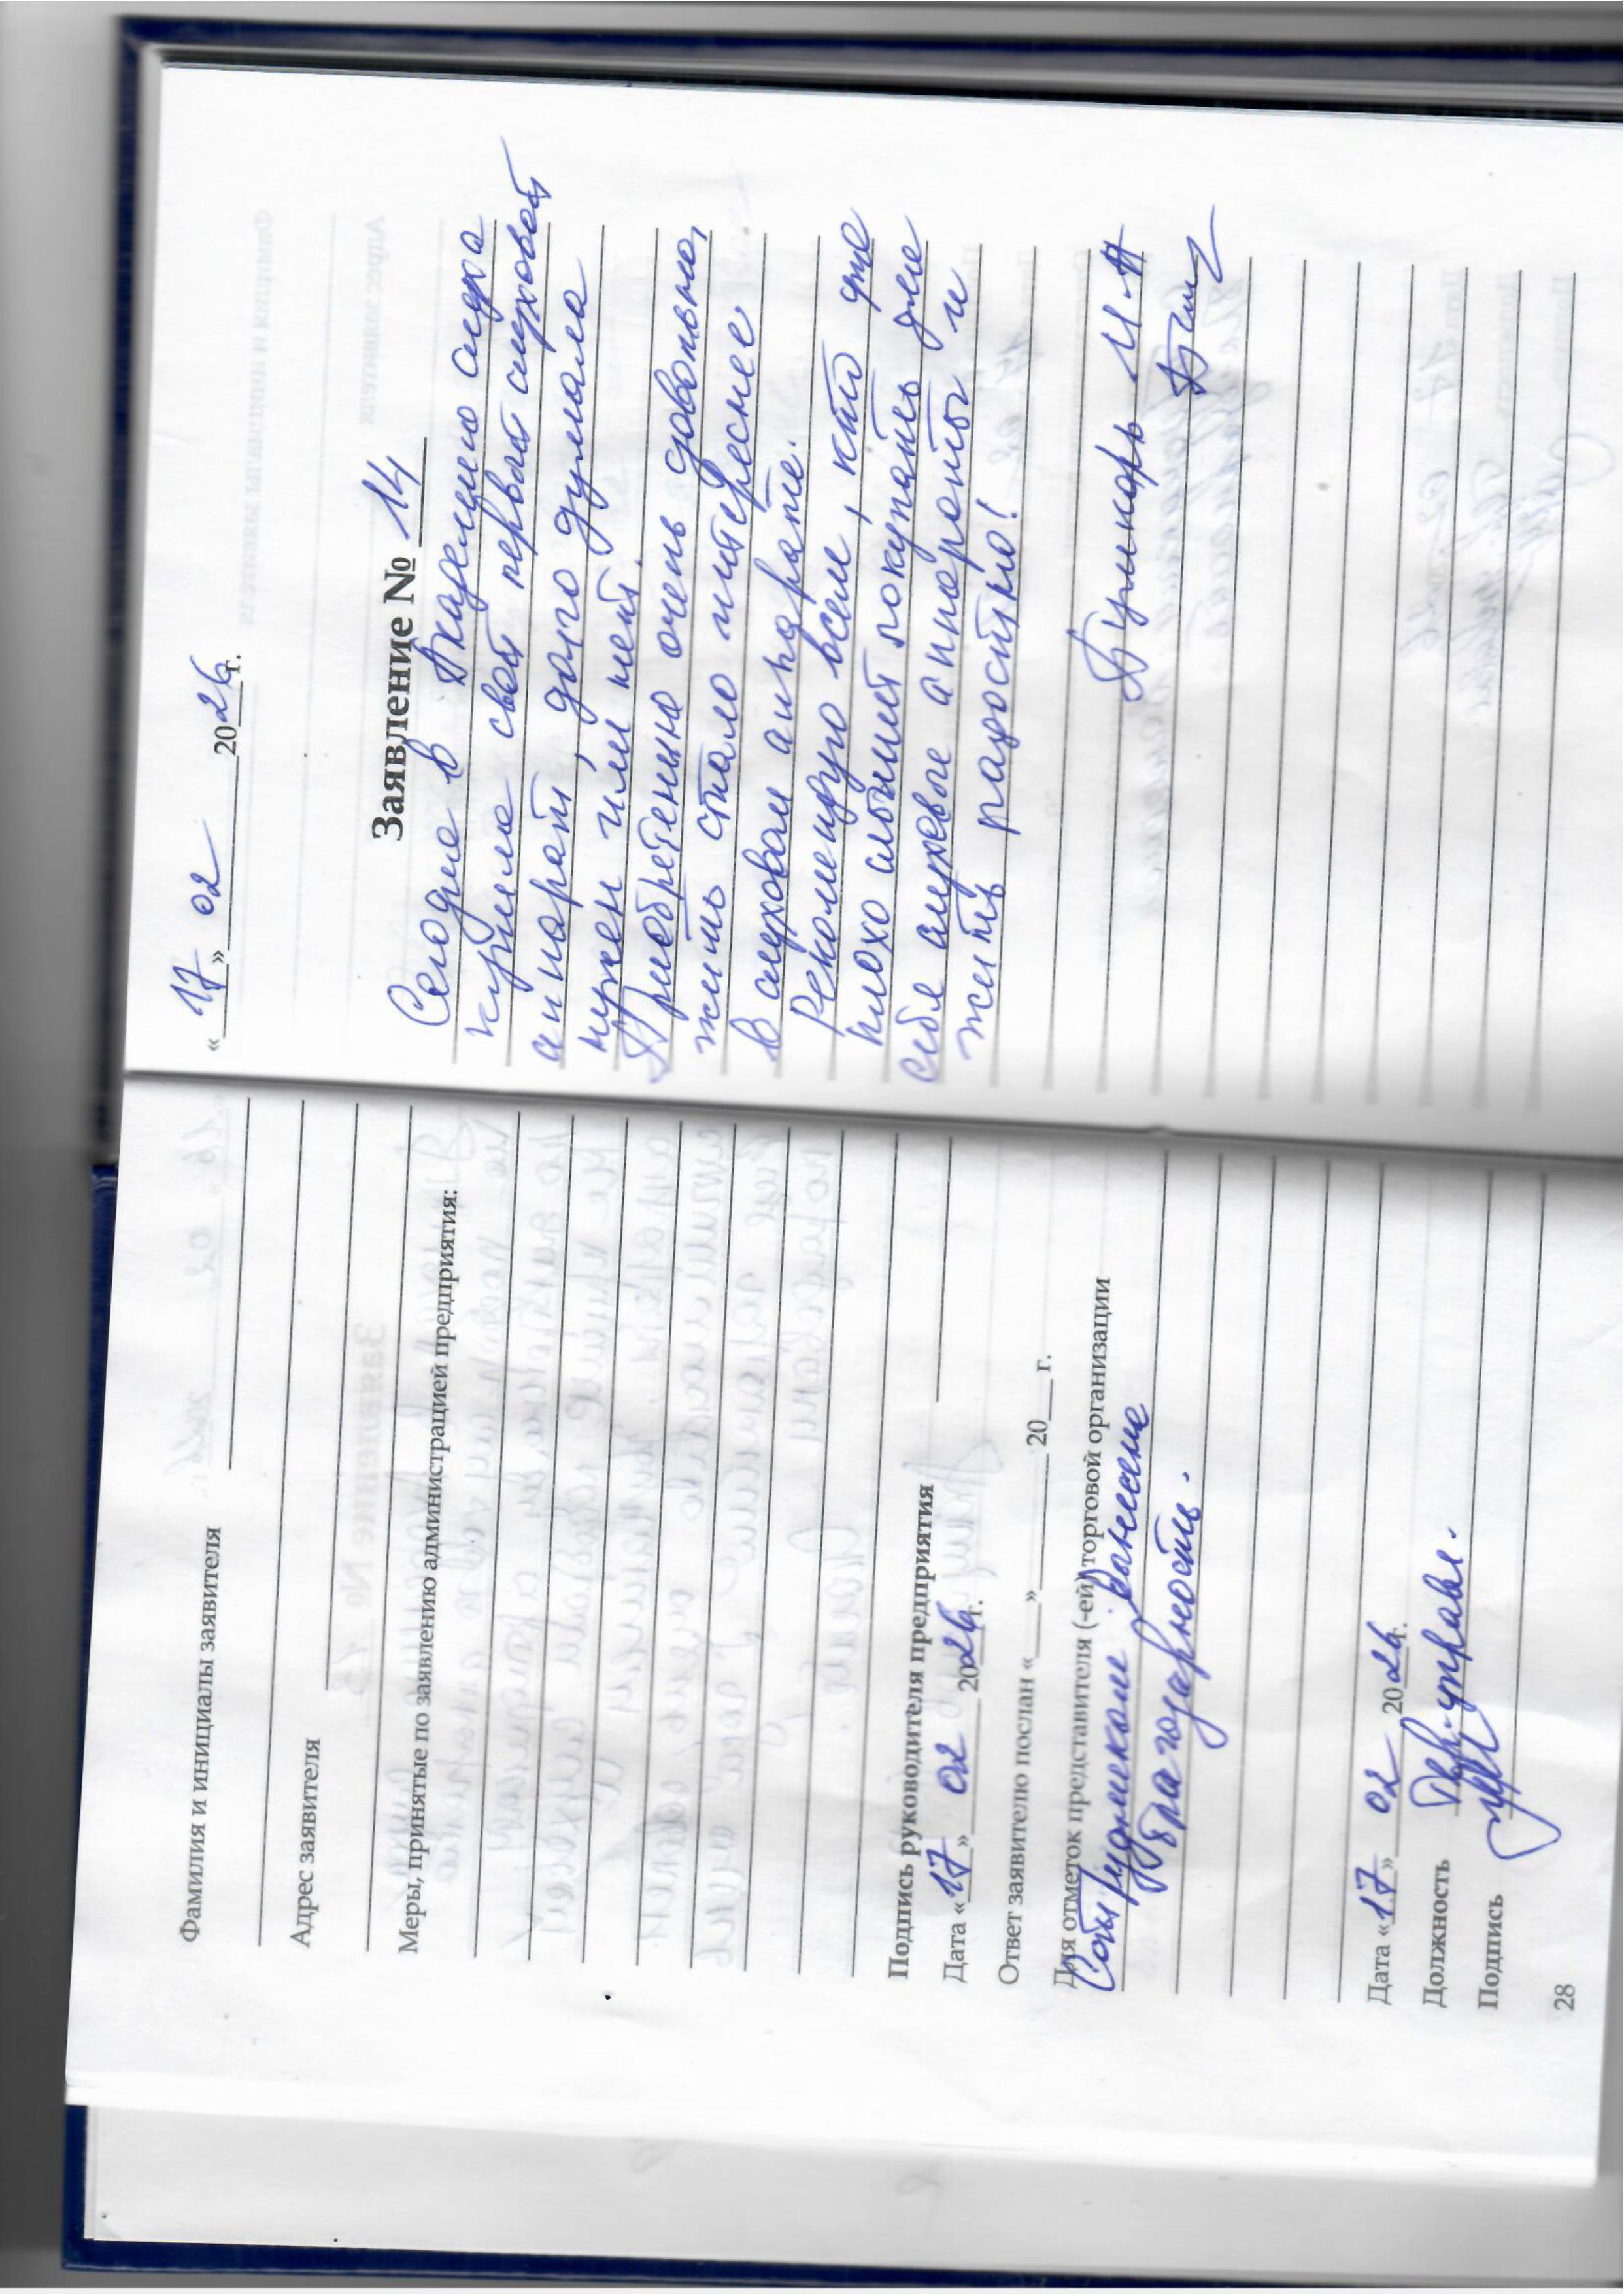 Фамилия и инициалы заявителя
Адрес заявителя
Меры, принятые по заявлению администрацией предприятия:
Подпись руководителя предприятия
Дата «17» 02 2026г.
Ответ заявителю послан «___» ______ 20__ г.
Для отметок представителя (-ей) торговой организации
Сотрудникам вынесена
благодарность.
Дата «17» 02 2026г.
Должность Тер. управл.
Подпись
28
«17» 02 2026г.
Заявление № 14
Сегодня в Академию слуха
купила свой первый слуховой
аппарат, долго думала
нужен или нет.
Приобретению очень довольна,
жить стало интереснее
в слуховом аппарате.
Рекомендую всем, кто уже
плохо слышит покупайте для
себя слуховые аппараты и
жить радостно!
И.А